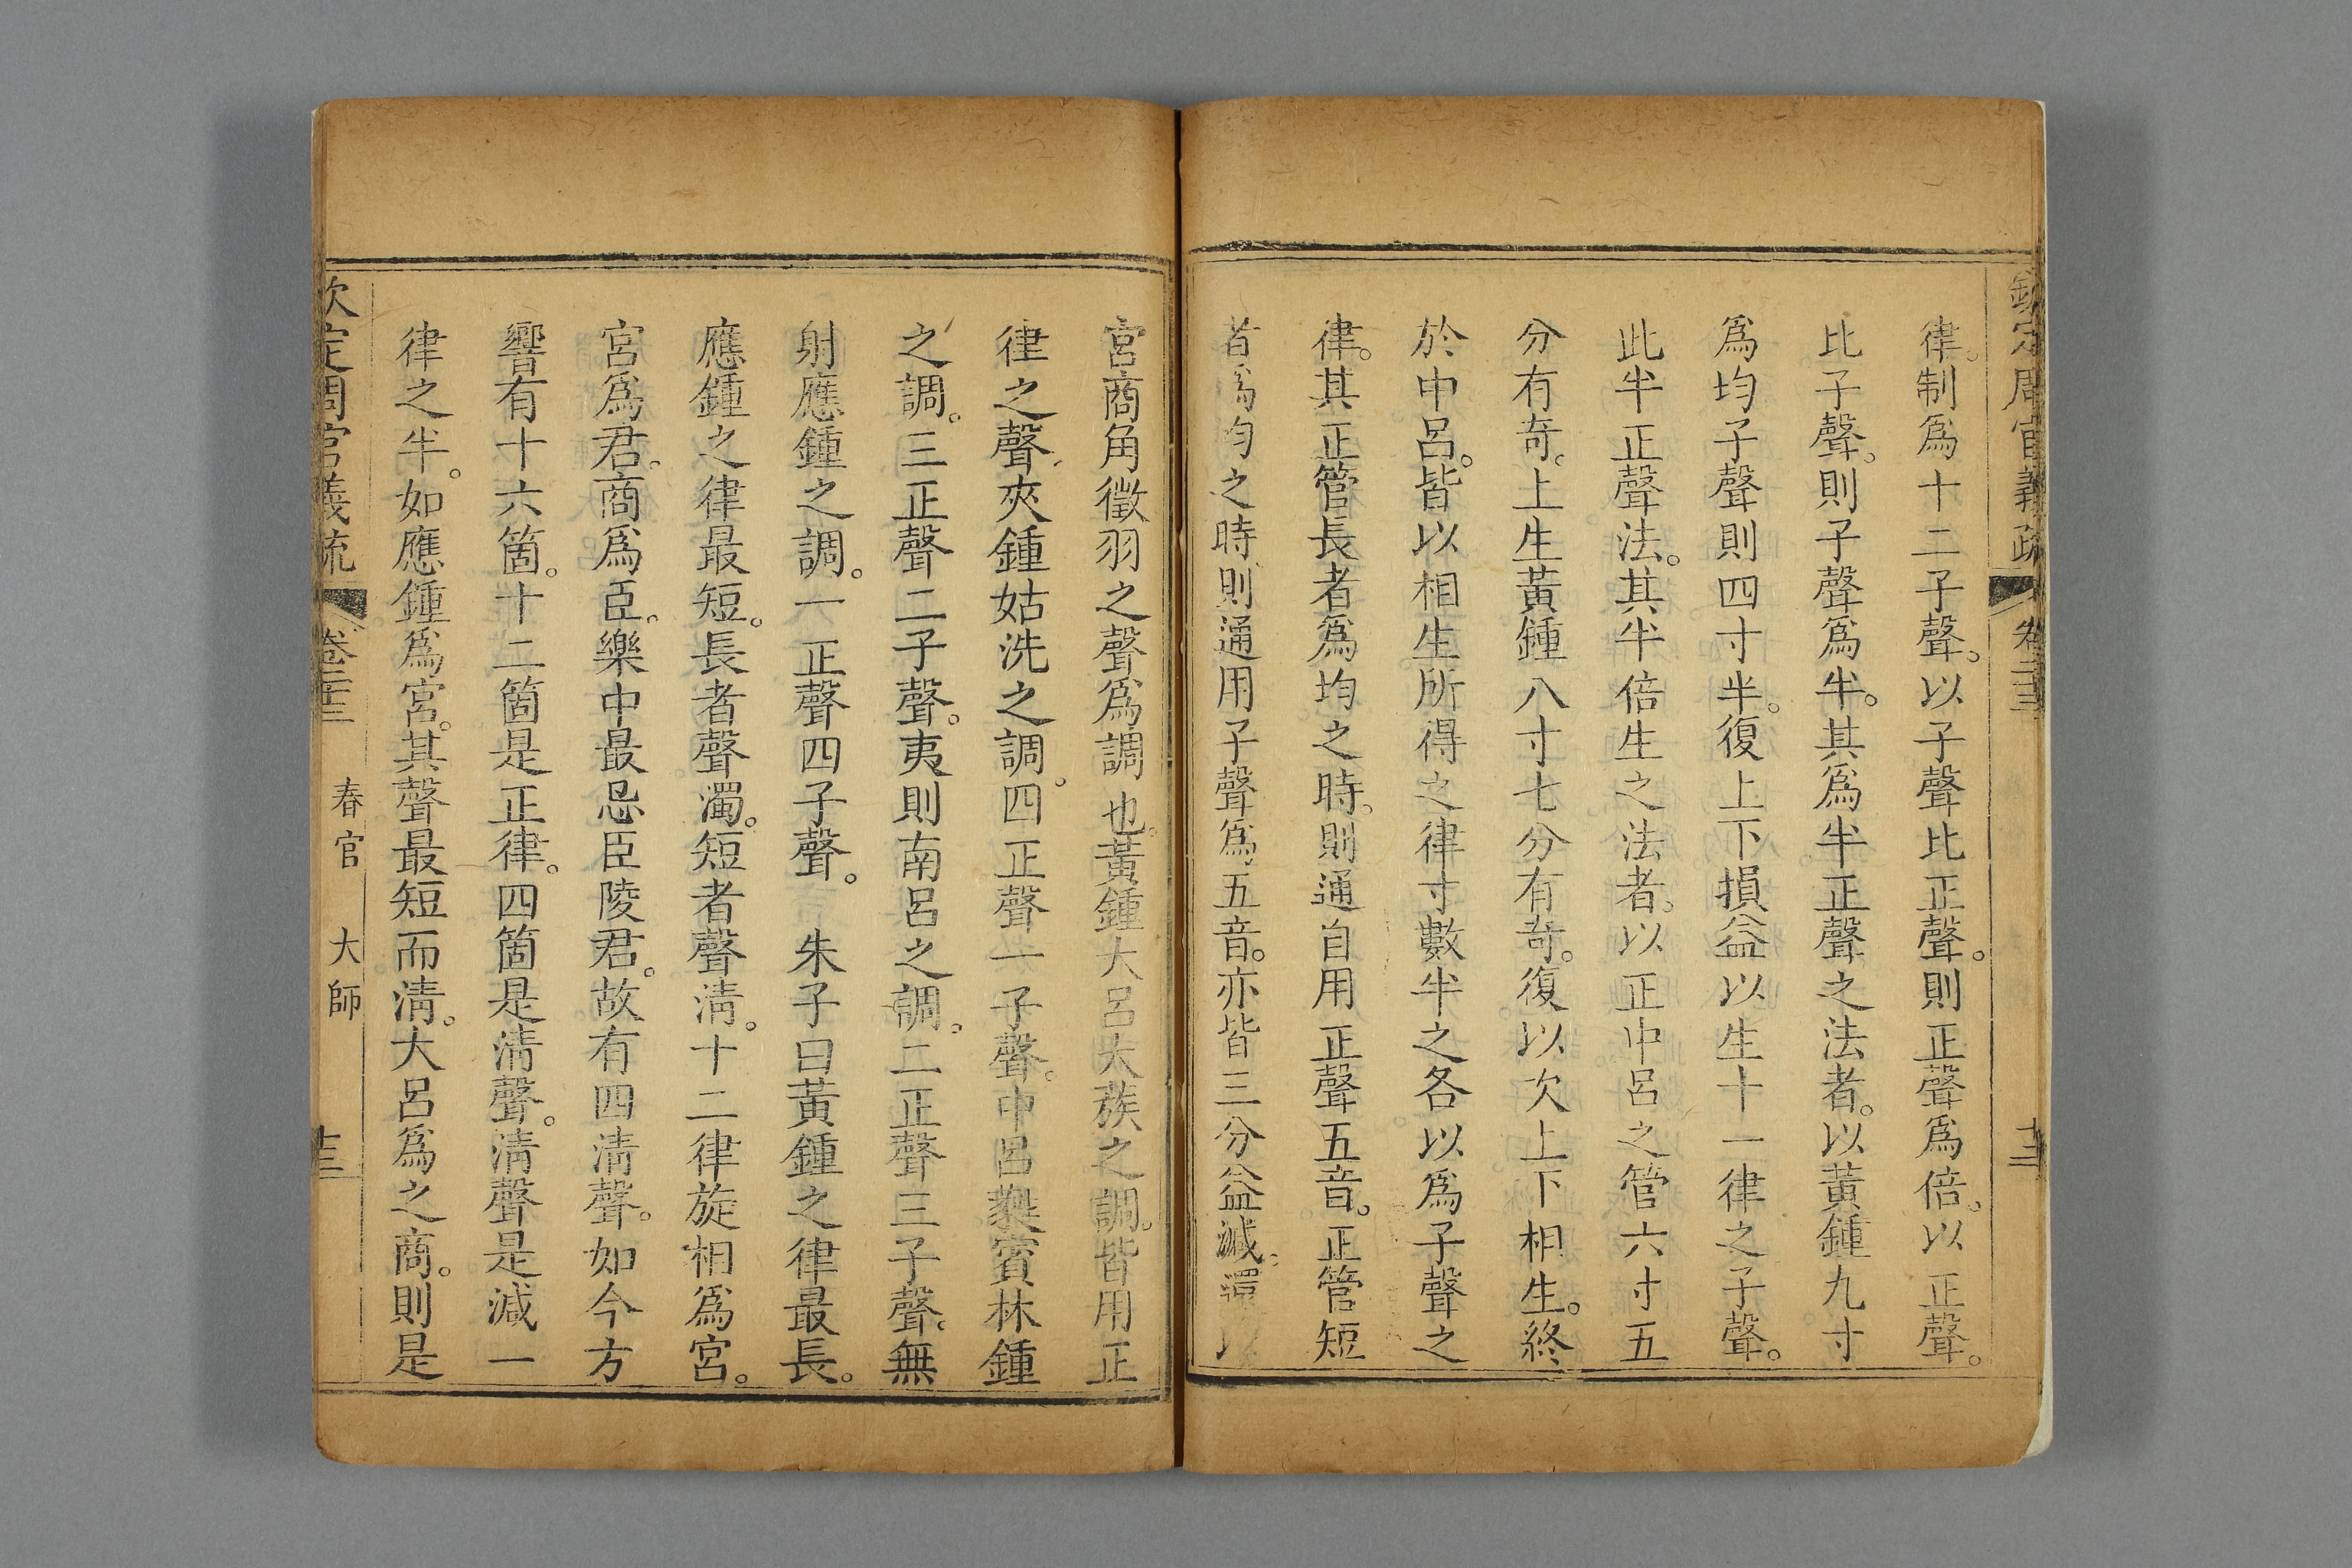 欽定周官義疏 卷二十三 十三
律。制爲十二子聲。以子聲比正聲。則正聲爲倍。以正聲。
比子聲。則子聲爲半。其爲半正聲之法者。以黃鍾九寸
爲均子聲則四寸半。復上下損益以生十一律之子聲。
此半正聲法。其半倍生之法者。以正中呂之管六寸五
分有奇。上生黃鍾八寸七分有奇。復以次上下相生。終
於中呂。皆以相生所得之律寸數半之各以爲子聲之
律。其正管長者爲均之時。則通自用正聲五音。正管短
者爲均之時則通用子聲爲五音。亦皆三分益減。還以
宮商角徵羽之聲爲調也。黃鍾大呂大蔟之調。皆用正
律之聲。夾鍾姑洗之調。四正聲一子聲。中呂蕤賓林鍾
之調。三正聲二子聲。夷則南呂之調。二正聲三子聲。無
射應鍾之調。一正聲四子聲。 朱子曰黃鍾之律最長。
應鍾之律最短。長者聲濁。短者聲淸。十二律旋相爲宮。
宮爲君。商爲臣。樂中最忌臣陵君。故有四淸聲。如今方
響有十六箇。十二箇是正律。四箇是淸聲。淸聲是減一
律之半。如應鍾爲宮。其聲最短而淸。大呂爲之商。則是
欽定周官義疏 卷二十三 春官 大師 十三